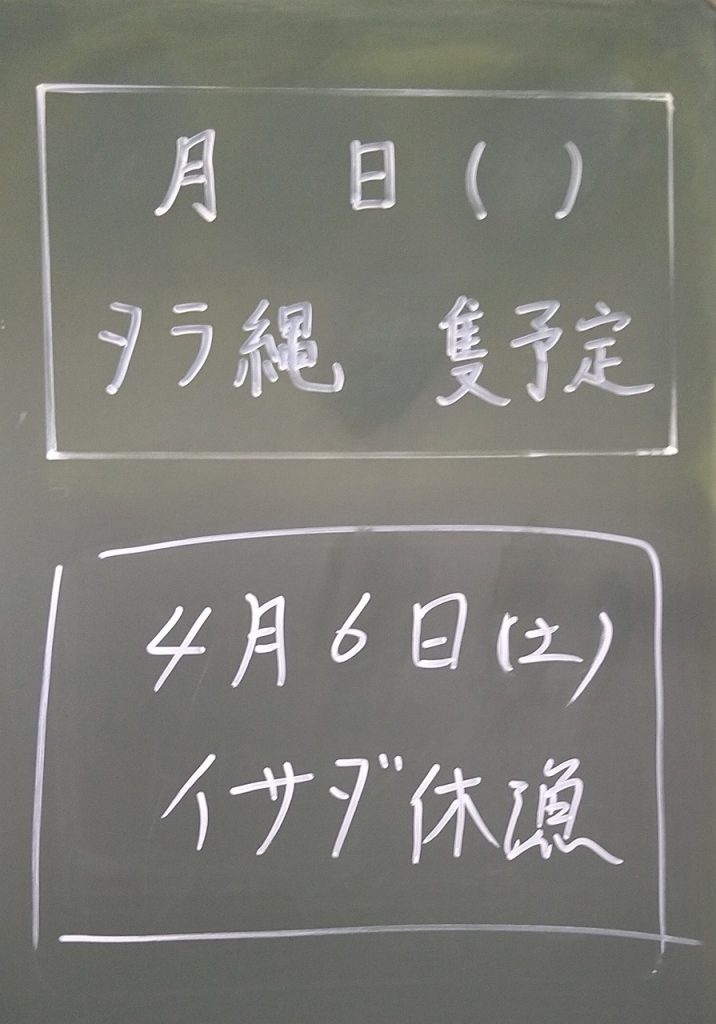 月 日( )
タラ縄 隻予定
4月6日(土)
イサダ休漁